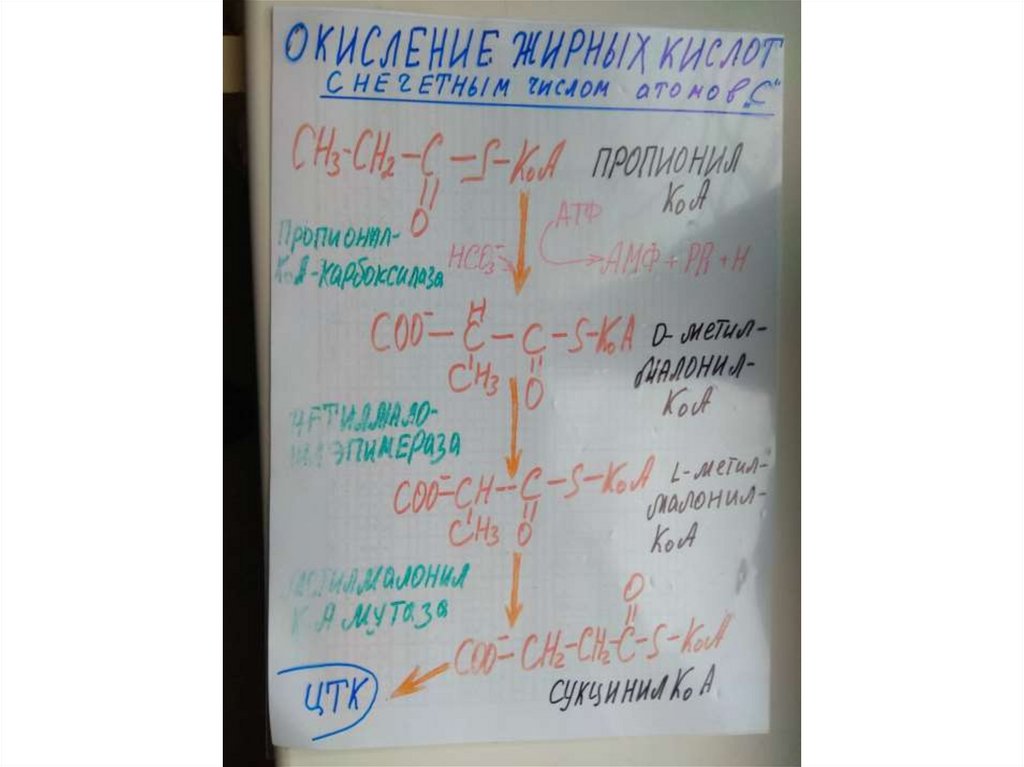 ОКИСЛЕНИЕ ЖИРНЫХ КИСЛОТ
С НЕЧЕТНЫМ числом атомов „С"
CH₃-CH₂-C-S-KoA ПРОПИОНИЛ
KoA
O
АТФ
Пропионил-
KoA-карбоксилаза
HCO₃⁻
АМФ + PPi + H
H
COO⁻-C-C-S-KoA D-метил-
CH₃ O
малонил-
KoA
МЕТИЛМАЛО-
НИЛЭПИМЕРАЗА
COO⁻-CH-C-S-KoA L-метил-
CH₃ O
малонил-
KoA
МЕТИЛМАЛОНИЛ
KoA мутаза
O
COO⁻-CH₂-CH₂-C-S-KoA
СУКЦИНИЛ KoA
ЦТК